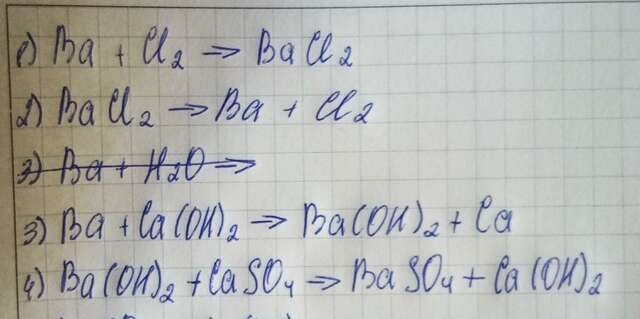 1) Ba + Cl₂ ⇒ BaCl₂
2) BaCl₂ ⇒ Ba + Cl₂
3) Ba + H₂O ⇒
3) Ba + Ca(OH)₂ ⇒ Ba(OH)₂ + Ca
4) Ba(OH)₂ + CaSO₄ ⇒ BaSO₄ + Ca(OH)₂